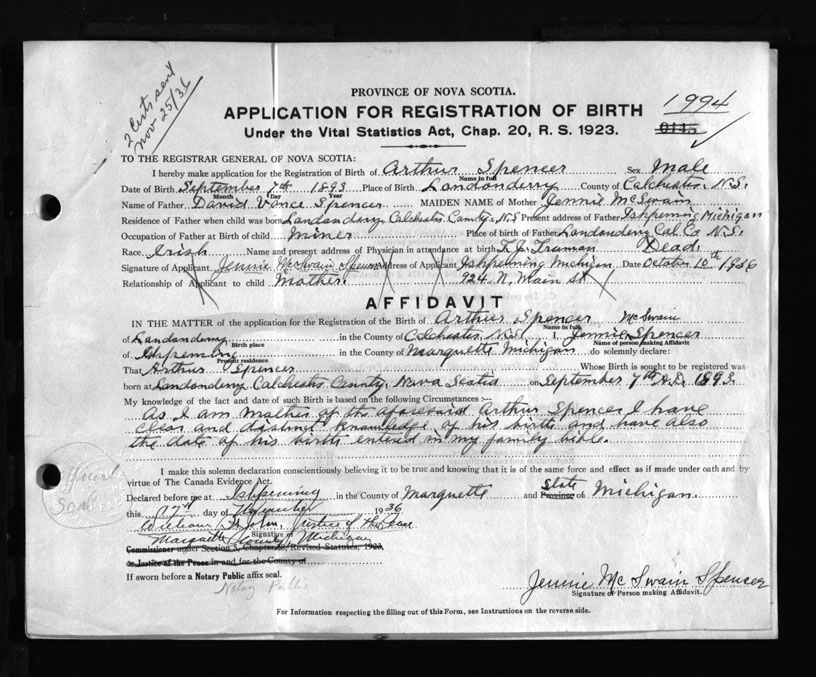 2 Certs sent
Nov 25/36
PROVINCE OF NOVA SCOTIA.
1994
APPLICATION FOR REGISTRATION OF BIRTH
0145
Under the Vital Statistics Act, Chap. 20, R. S. 1923.
TO THE REGISTRAR GENERAL OF NOVA SCOTIA:
I hereby make application for the Registration of Birth of Arthur Spencer Sex Male
Name in full
Date of Birth September 7th 1893 Place of Birth Londonderry County of Colchester N.S.
Month Day Year
Name of Father David Vance Spencer MAIDEN NAME of Mother Jennie McSwain
Residence of Father when child was born Londonderry Colchester County N.S Present address of Father Ishpeming Michigan
Occupation of Father at Birth of child Miner Place of birth of Father Londonderry Col Co N.S.
Race Irish Name and present address of Physician in attendance at birth T. J. Truman Dead.
Signature of Applicant Jennie McSwain Spencer Address of Applicant Ishpeming Michigan Date October 10th 1936
Relationship of Applicant to child Mother. 924 N. Main St
AFFIDAVIT
IN THE MATTER of the application for the Registration of the Birth of Arthur Spencer McSwain
Name in full
of Londonderry in the County of Colchester N.S. I, Jennie Spencer
Birth place Name of person making Affidavit
of Ishpeming in the County of Marquette Michigan do solemnly declare:
Present residence
That Arthur Spencer Whose Birth is sought to be registered was
born at Londonderry Colchester County, Nova Scotia on September 7th A.D. 1893
My knowledge of the fact and date of such Birth is based on the following Circumstances :—
As I am Mother of the aforesaid Arthur Spencer I have
clear and distinct knowledge of his birth and have also
the date of his birth entered in my family bible.
Official
Seal
I make this solemn declaration conscientiously believing it to be true and knowing that it is of the same force and effect as if made under oath and by
virtue of The Canada Evidence Act.
State
Declared before me at Ishpeming in the County of Marquette and Province of Michigan.
this 17th day of November 1936
William St John, Justice of the Peace
Signature of
Marquette County, Michigan
Commissioner under Section 5, Chapter 38, Revised Statutes, 1923,
or Justice of the Peace in and for the County of
If sworn before a Notary Public affix seal.
Notary Public
Jennie McSwain Spencer
Signature of Person making Affidavit.
For Information respecting the filling out of this Form, see Instructions on the reverse side.